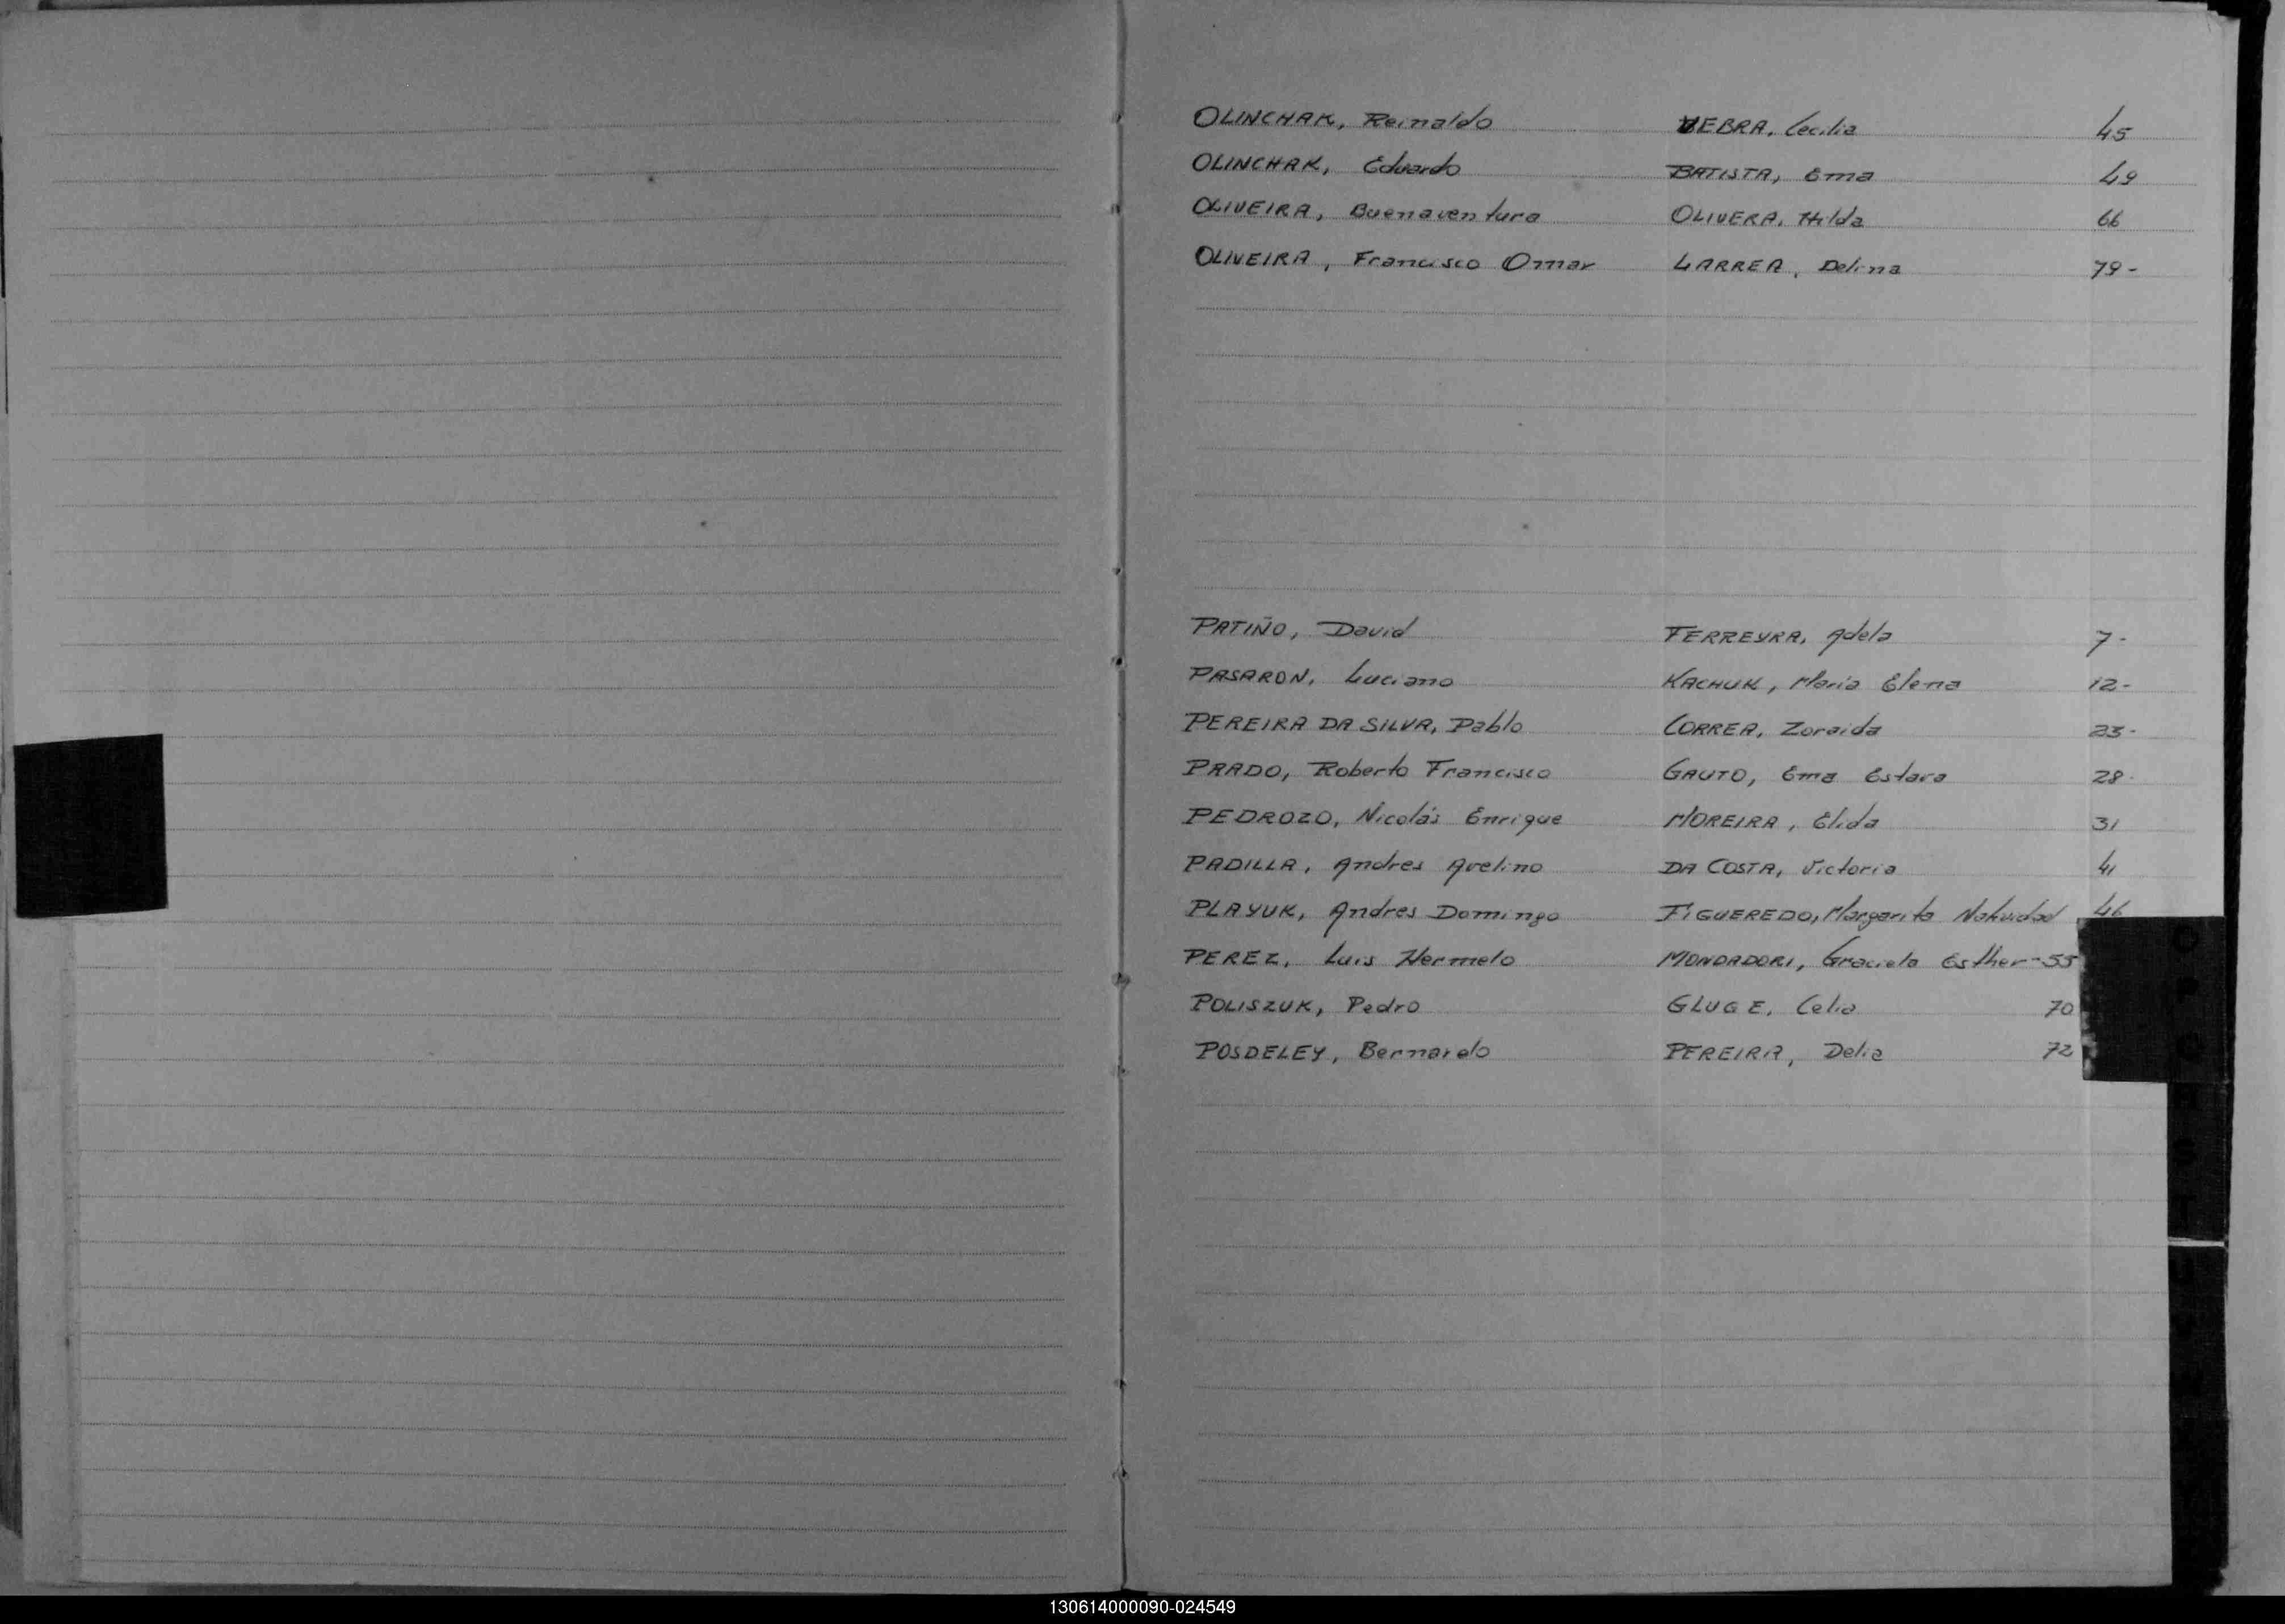 OLINCHAK, Reinaldo VEBRA, Cecilia 45
OLINCHAK, Eduardo BATISTA, Ema 49
OLIVEIRA, Buenaventura OLIVERA, Hilda 66
OLIVEIRA, Francisco Omar LARREA, Delina 79-
PATIÑO, David FERREYRA, Adela 7-
PASARON, Luciano KACHUK, María Elena 12-
PEREIRA DA SILVA, Pablo CORREA, Zoraida 23-
PRADO, Roberto Francisco GAUTO, Ema Estara 28-
PEDROZO, Nicolás Enrique MOREIRA, Elida 31
PADILLA, Andres Avelino DA COSTA, Victoria 41
PLAYUK, Andres Domingo FIGUEREDO, Margarita Natividad 46
PEREZ, Luis Hermelo MONDADORI, Graciela Esther-55
POLISZUK, Pedro GLUGE, Celia 70
POSDELEY, Bernardo PEREIRA, Delia 72
130614000090-024549